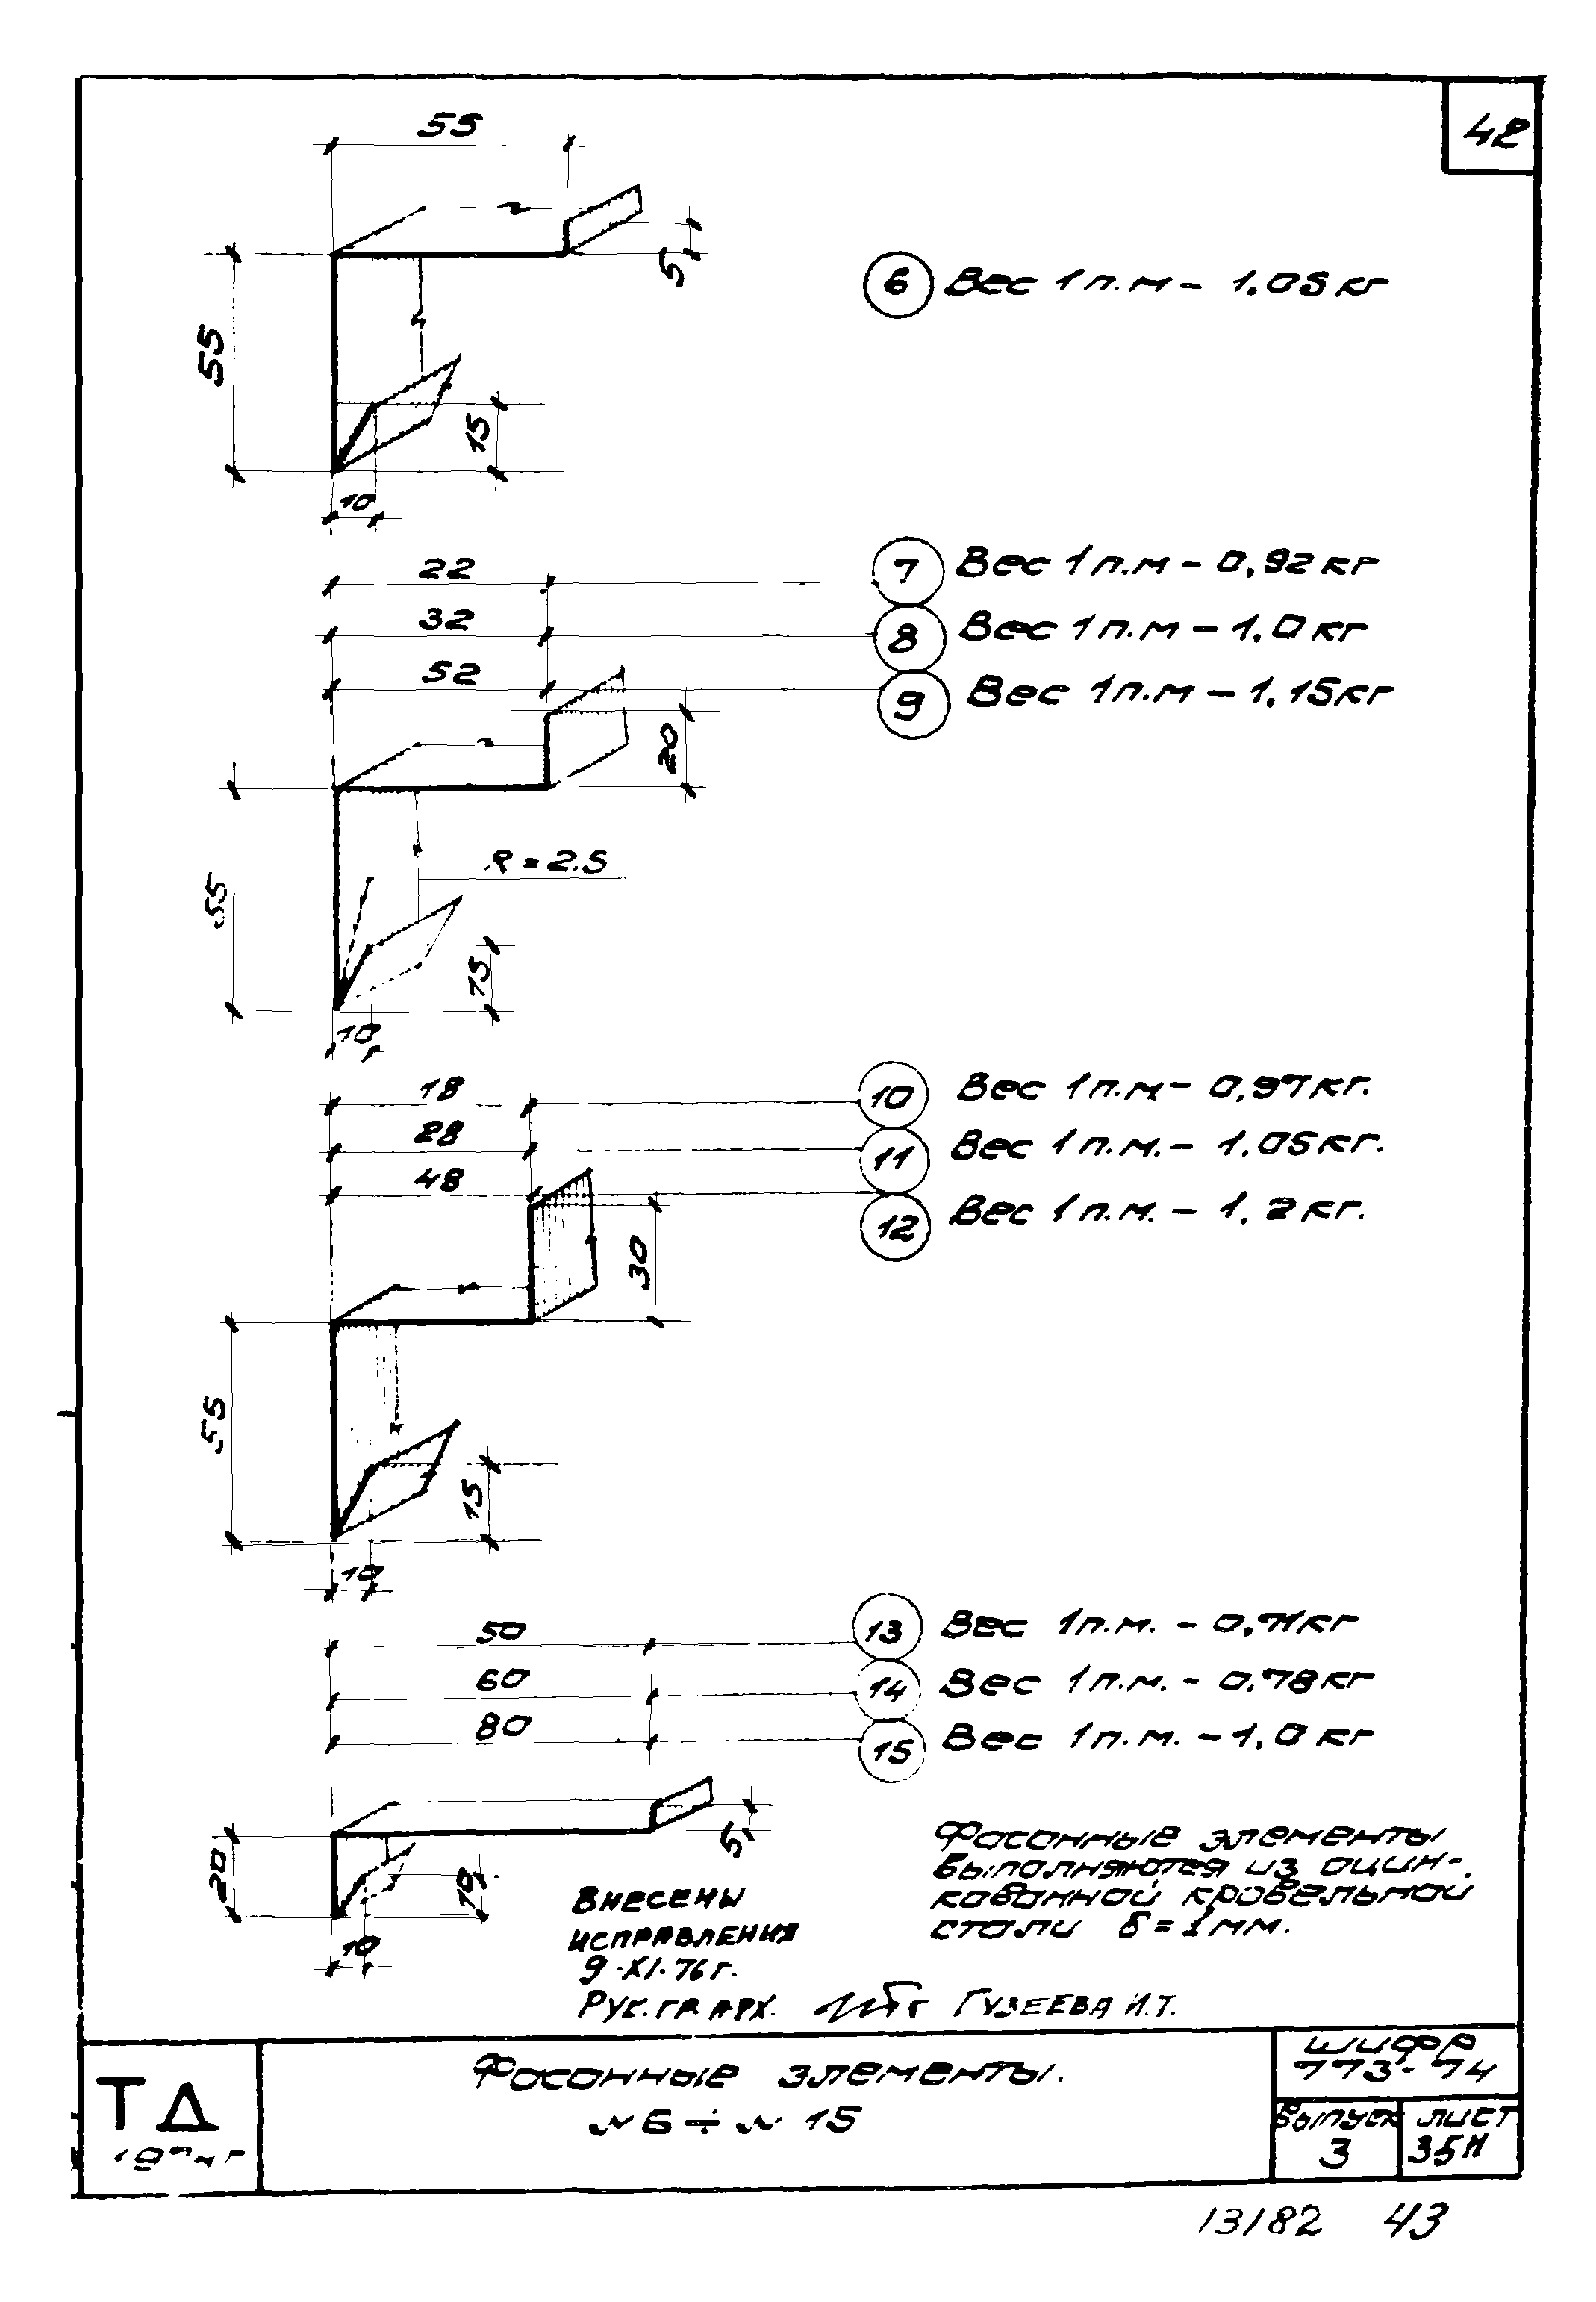 42
55
5
55
15
10
6 Вес 1 п.м - 1.05 кг
22
7 Вес 1 п.м - 0,92 кг
32
8 Вес 1 п.м - 1.0 кг
52
9 Вес 1 п.м - 1,15 кг
20
R = 2.5
55
15
10
18
10 Вес 1 п.м - 0,97 кг.
28
11 Вес 1 п.м. - 1.05 кг.
48
12 Вес 1 п.м. - 1.2 кг.
30
55
15
10
50
13 Вес 1 п.м. - 0,71 кг
60
14 Вес 1 п.м. - 0.78 кг
80
15 Вес 1 п.м. - 1,0 кг
5
20
10
10
Фасонные элементы
выполняются из оцин-
кованной кровельной
стали δ = 1 мм.
Внесены
исправления
9.XI.76 г.
Рук. гр. арх. Гузеева И.Т.
ТД
Фасонные элементы.
№ 6 ÷ № 15
шифр
773-74
выпуск
3
лист
35И
13182 43